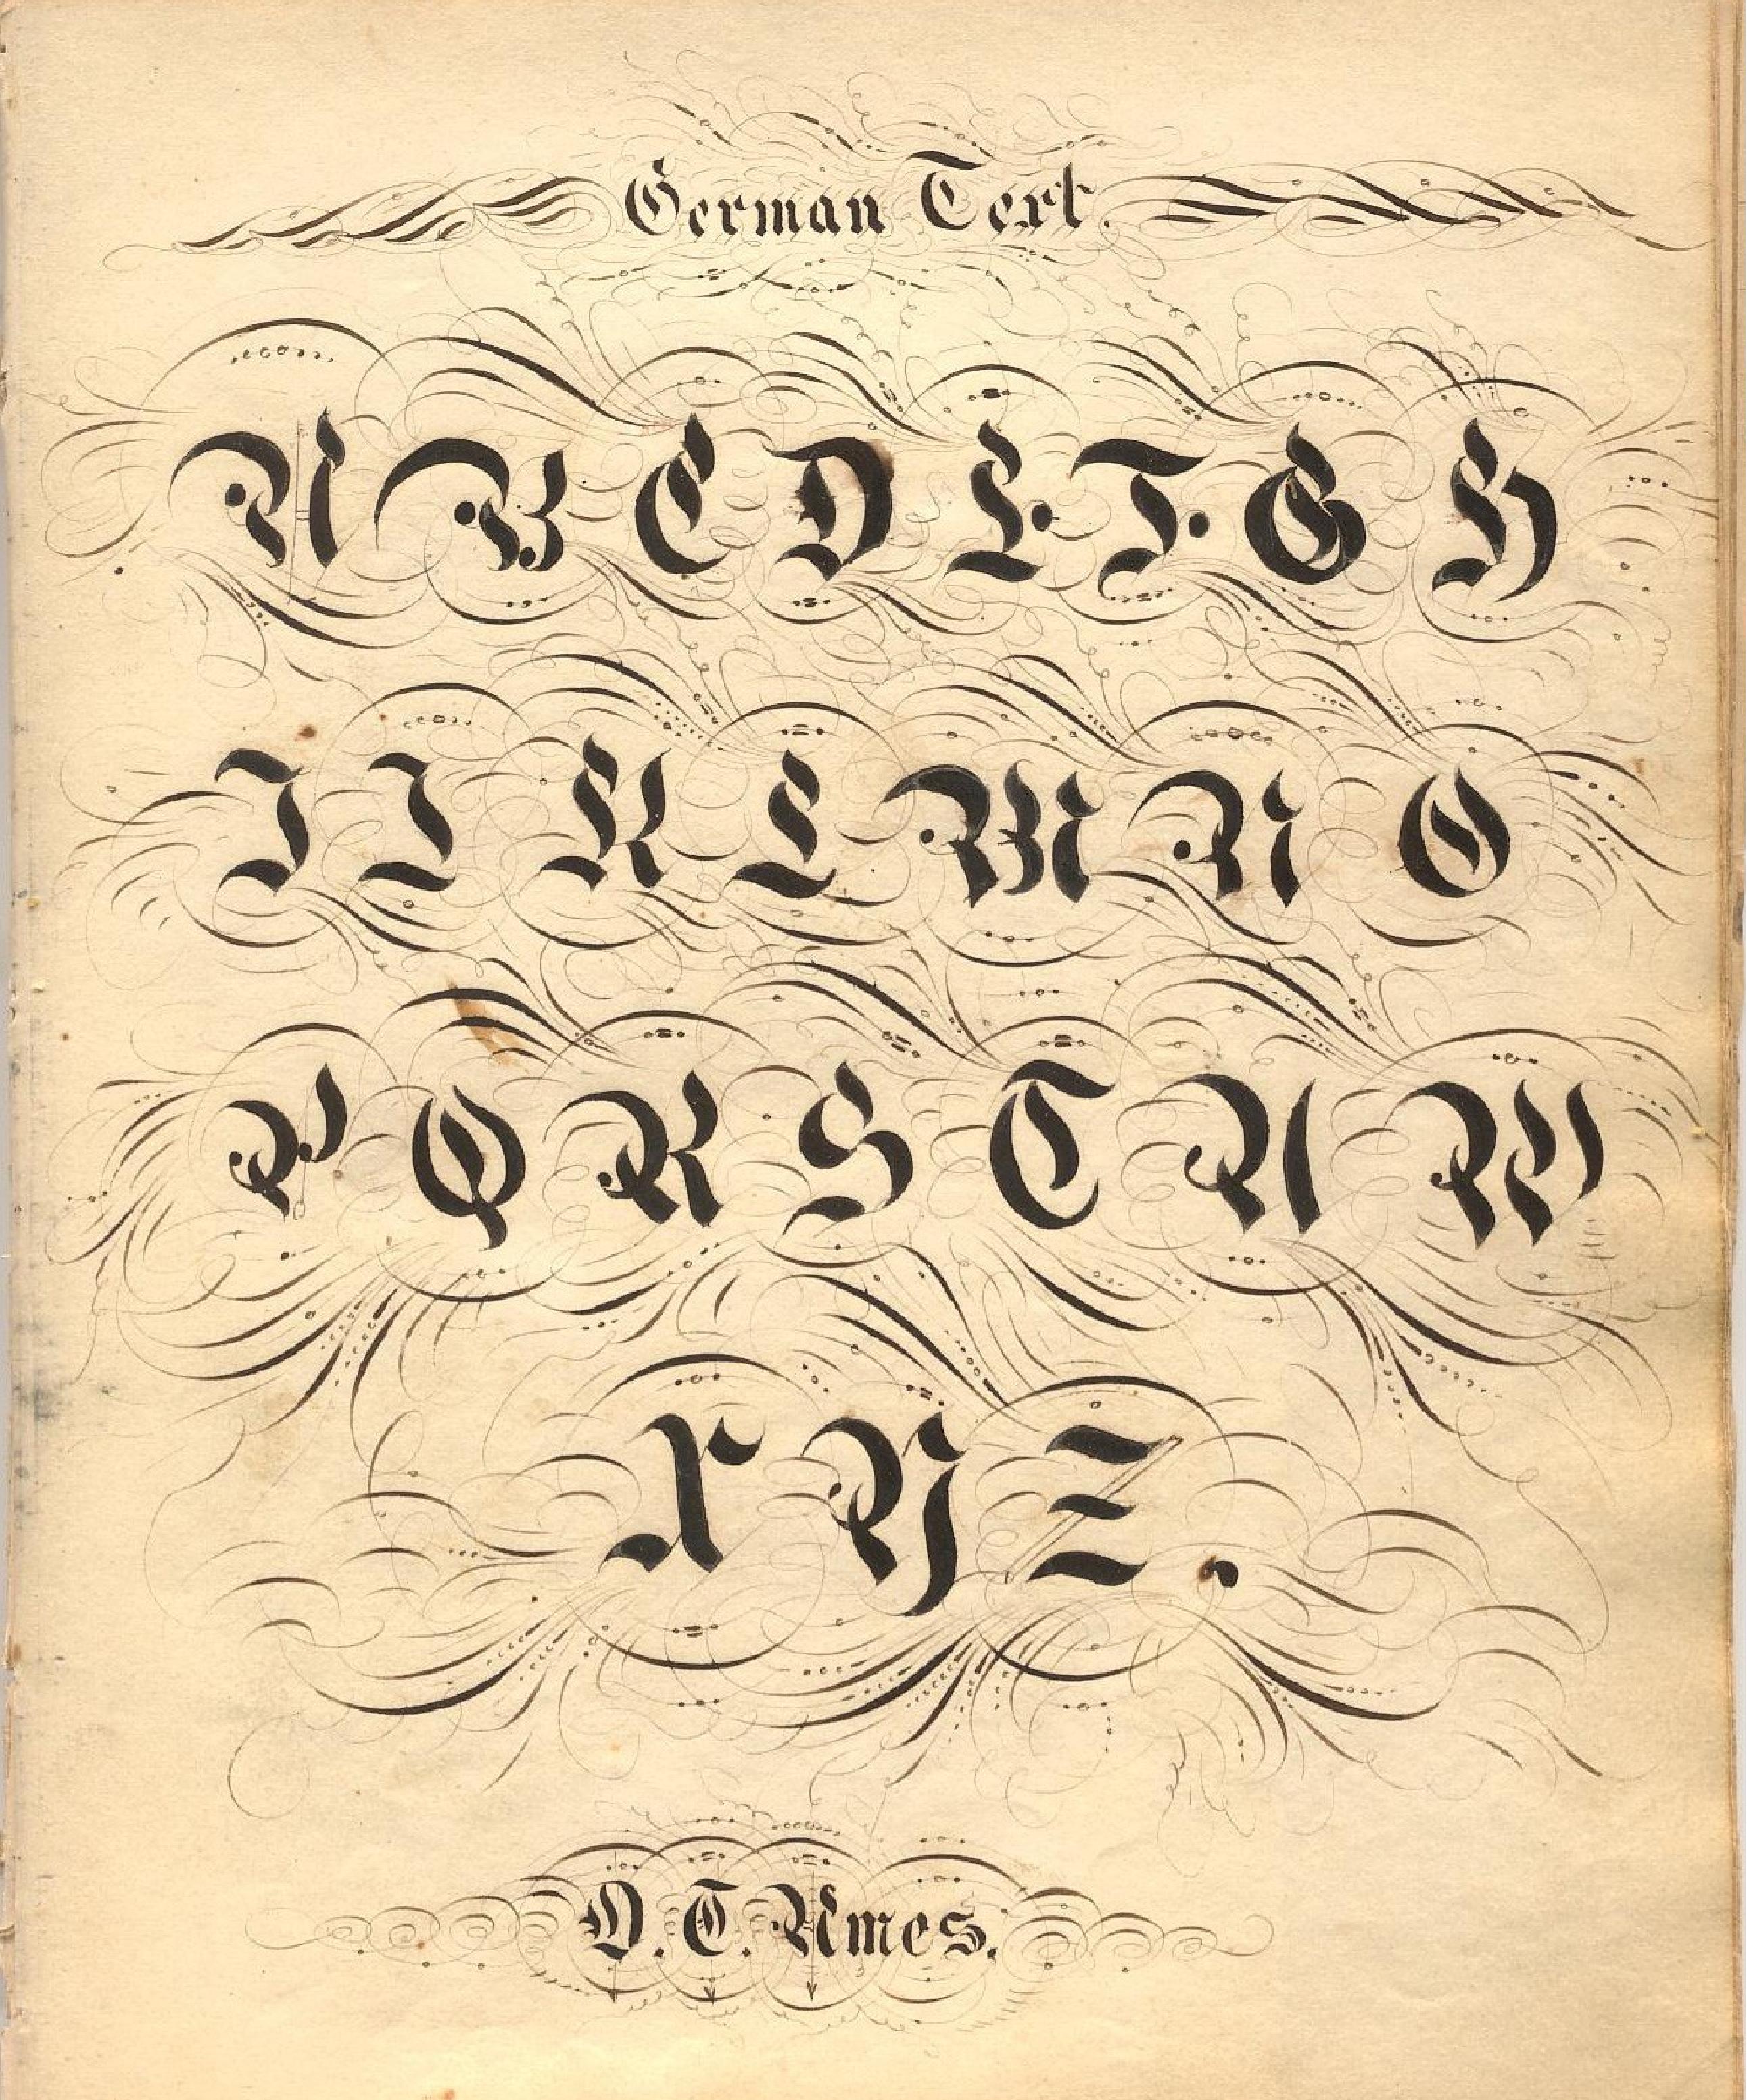 German Text.
A B C D E F G H
I J K L M N O
P Q R S T U W
X Y Z.
D. T. Ames.